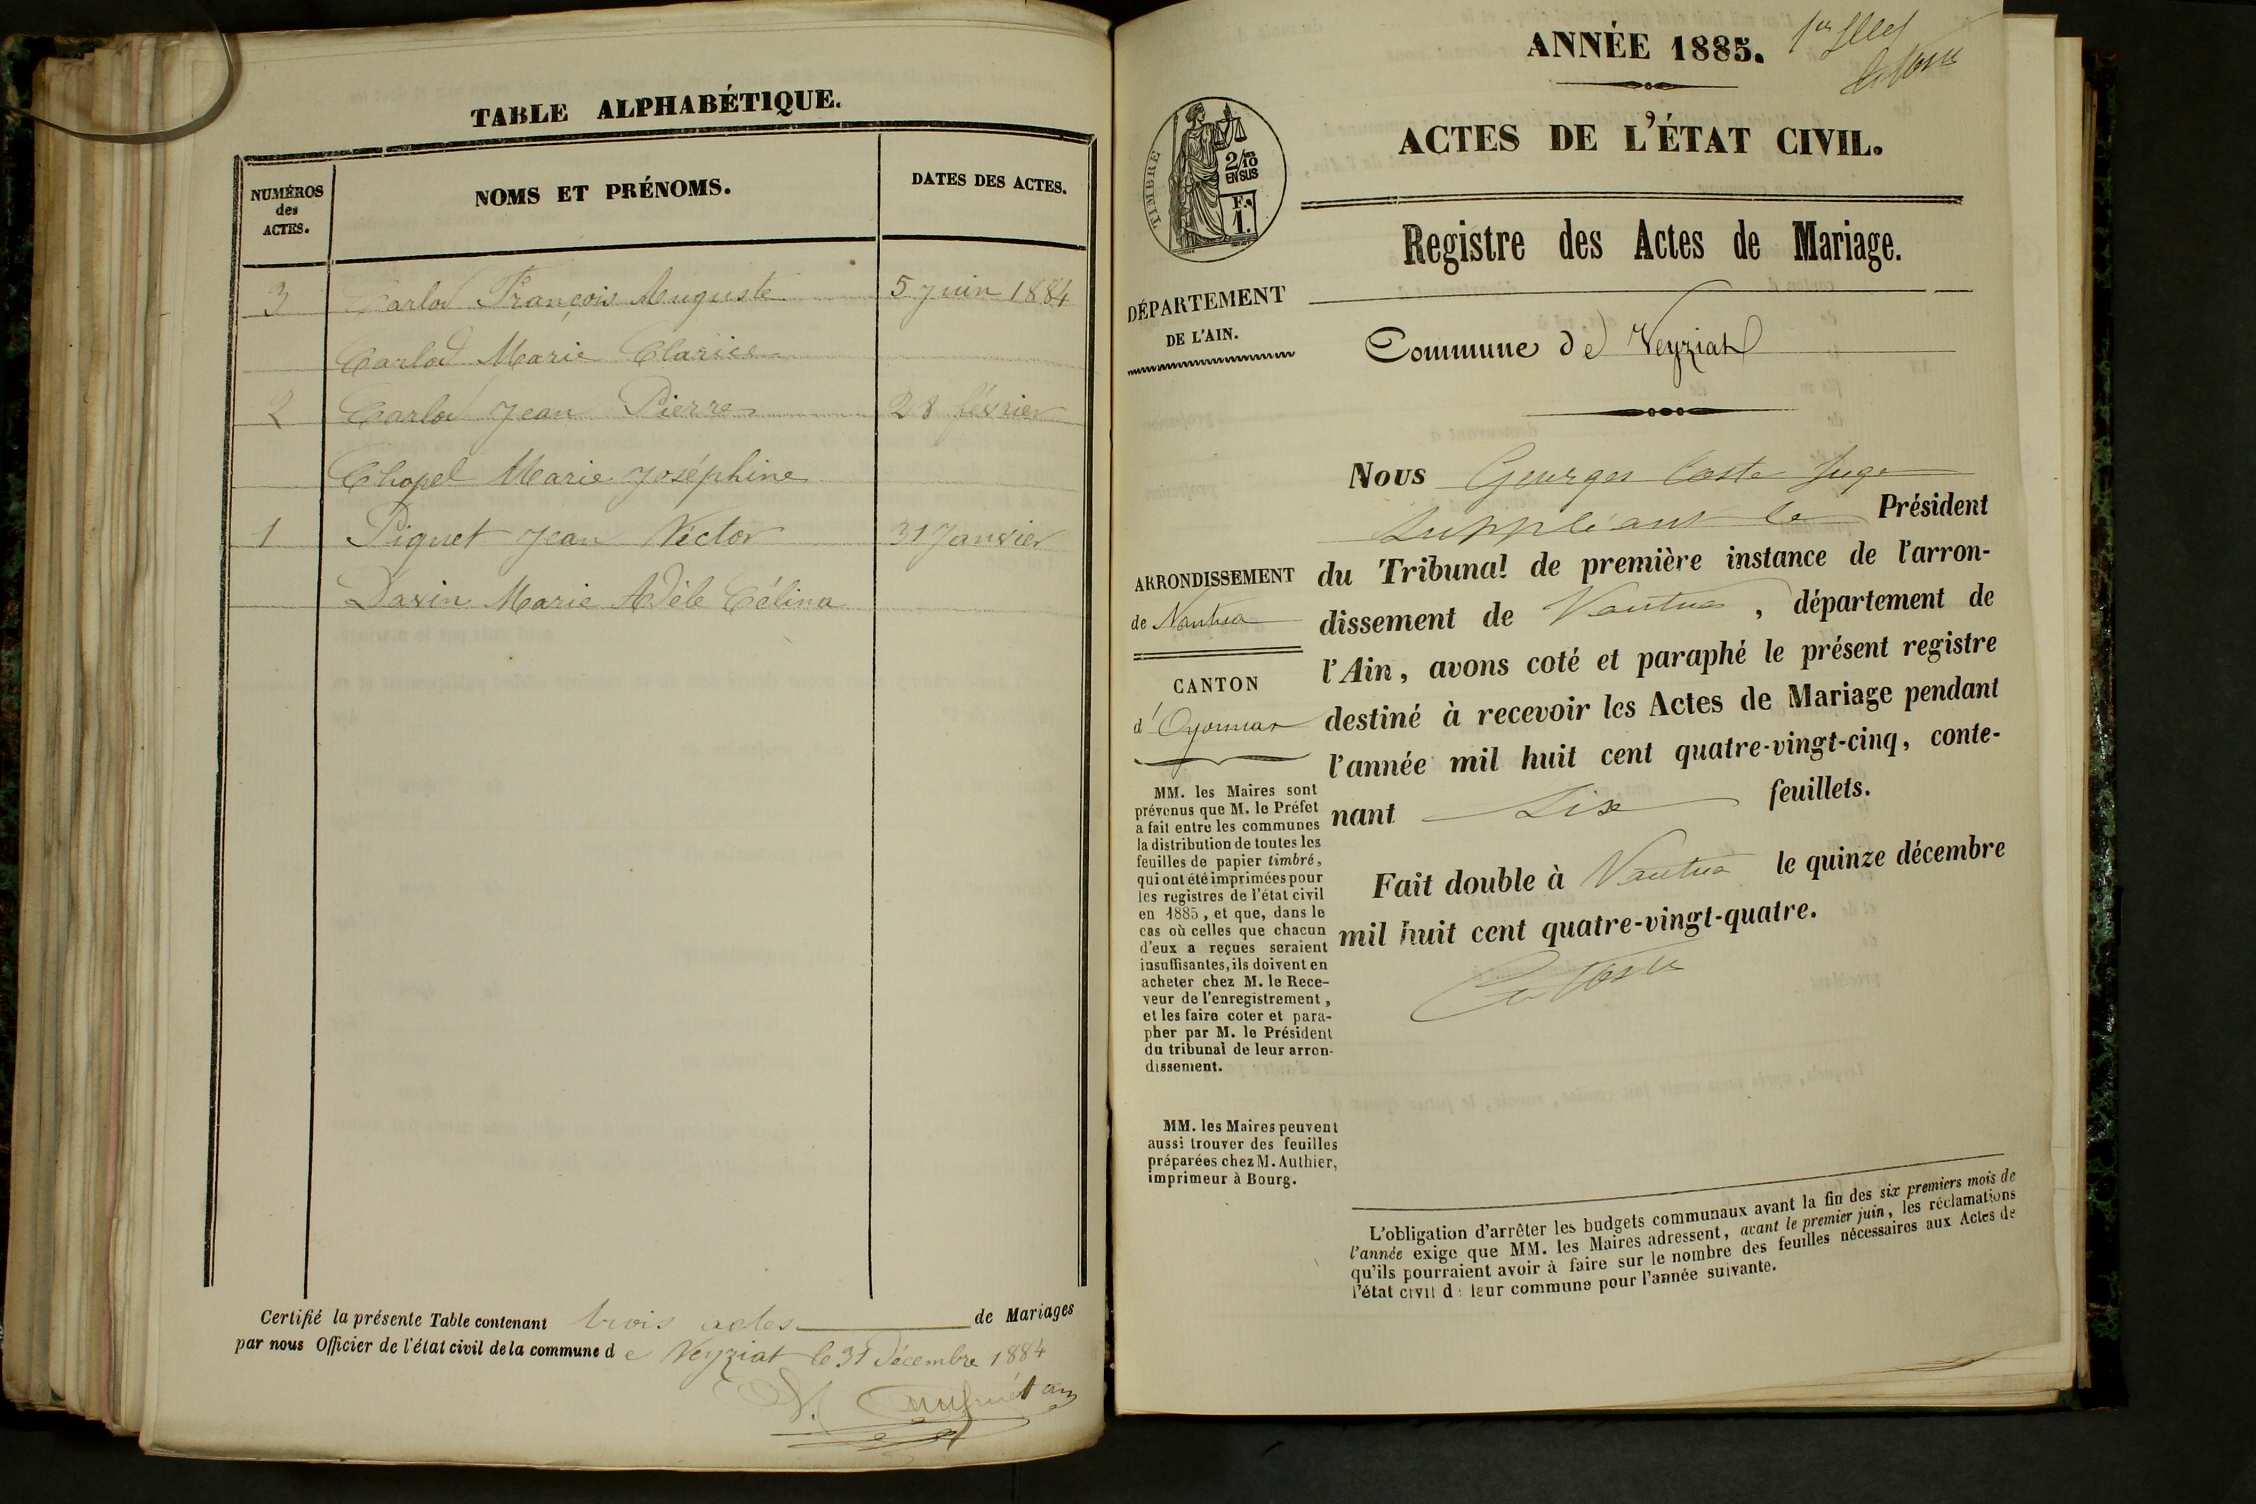 TABLE ALPHABÉTIQUE.
NUMÉROS
des
ACTES.
NOMS ET PRÉNOMS.
DATES DES ACTES.
3 Carlod François Auguste 5 juin 1884
Carlod Marie Clarisse
2 Carlod Jean Pierre 28 février
Chapel Marie Joséphine
1 Piquet Jean Victor 31 Janvier
Marie Adèle Célina
Certifié la présente Table contenant trois actes de Mariages
par nous Officier de l'état civil de la commune de Veyziat le 31 Décembre 1884
ANNÉE 1885.
ACTES DE L'ÉTAT CIVIL.
TIMBRE
2/10
EN SUS
F.
1.
Registre des Actes de Mariage.
DÉPARTEMENT
DE L'AIN.
Commune de Veyziat
ARRONDISSEMENT
de Nantua
CANTON
d'Oyonnax
MM. les Maires sont
prévenus que M. le Préfet
a fait entre les communes
la distribution de toutes les
feuilles de papier timbré,
qui ont été imprimées pour
les registres de l'état civil
en 1885, et que, dans le
cas où celles que chacun
d'eux a reçues seraient
insuffisantes, ils doivent en
acheter chez M. le Rece-
veur de l'enregistrement,
et les faire coter et para-
pher par M. le Président
du tribunal de leur arron-
dissement.
MM. les Maires peuvent
aussi trouver des feuilles
préparées chez M. Authier,
imprimeur à Bourg.
Nous Georges Coste Juge
suppléant le Président
du Tribunal de première instance de l'arron-
dissement de Nantua, département de
l'Ain, avons coté et paraphé le présent registre
destiné à recevoir les Actes de Mariage pendant
l'année mil huit cent quatre-vingt-cinq, conte-
nant six feuillets.
Fait double à Nantua le quinze décembre
mil huit cent quatre-vingt-quatre.
L'obligation d'arrêter les budgets communaux avant la fin des six premiers mois de
l'année exige que MM. les Maires adressent, avant le premier juin, les réclamations
qu'ils pourraient avoir à faire sur le nombre des feuilles nécessaires aux Actes de
l'état civil de leur commune pour l'année suivante.